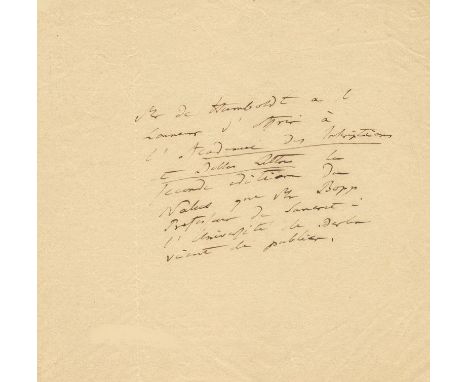 Mr de Humboldt a l
honneur d'offrir à
l'Academie des Inscriptions
et Belles Lettres la
seconde edition du
Nalus que Mr Bopp
Professeur de Sanscrit à
l'Université de Berlin
vient de publier.